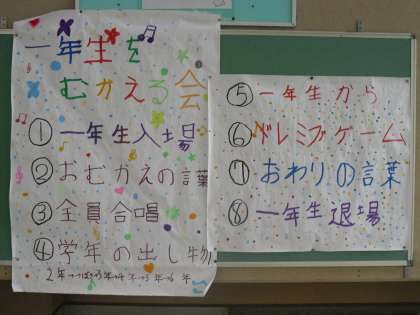 一年生を
むかえる会
①一年生入場
②おむかえの言葉
③全員合唱
④学年の出し物
2年→
⑤一年生から
⑥ドレミブゲーム
⑦おわりの言葉
⑧一年生退場